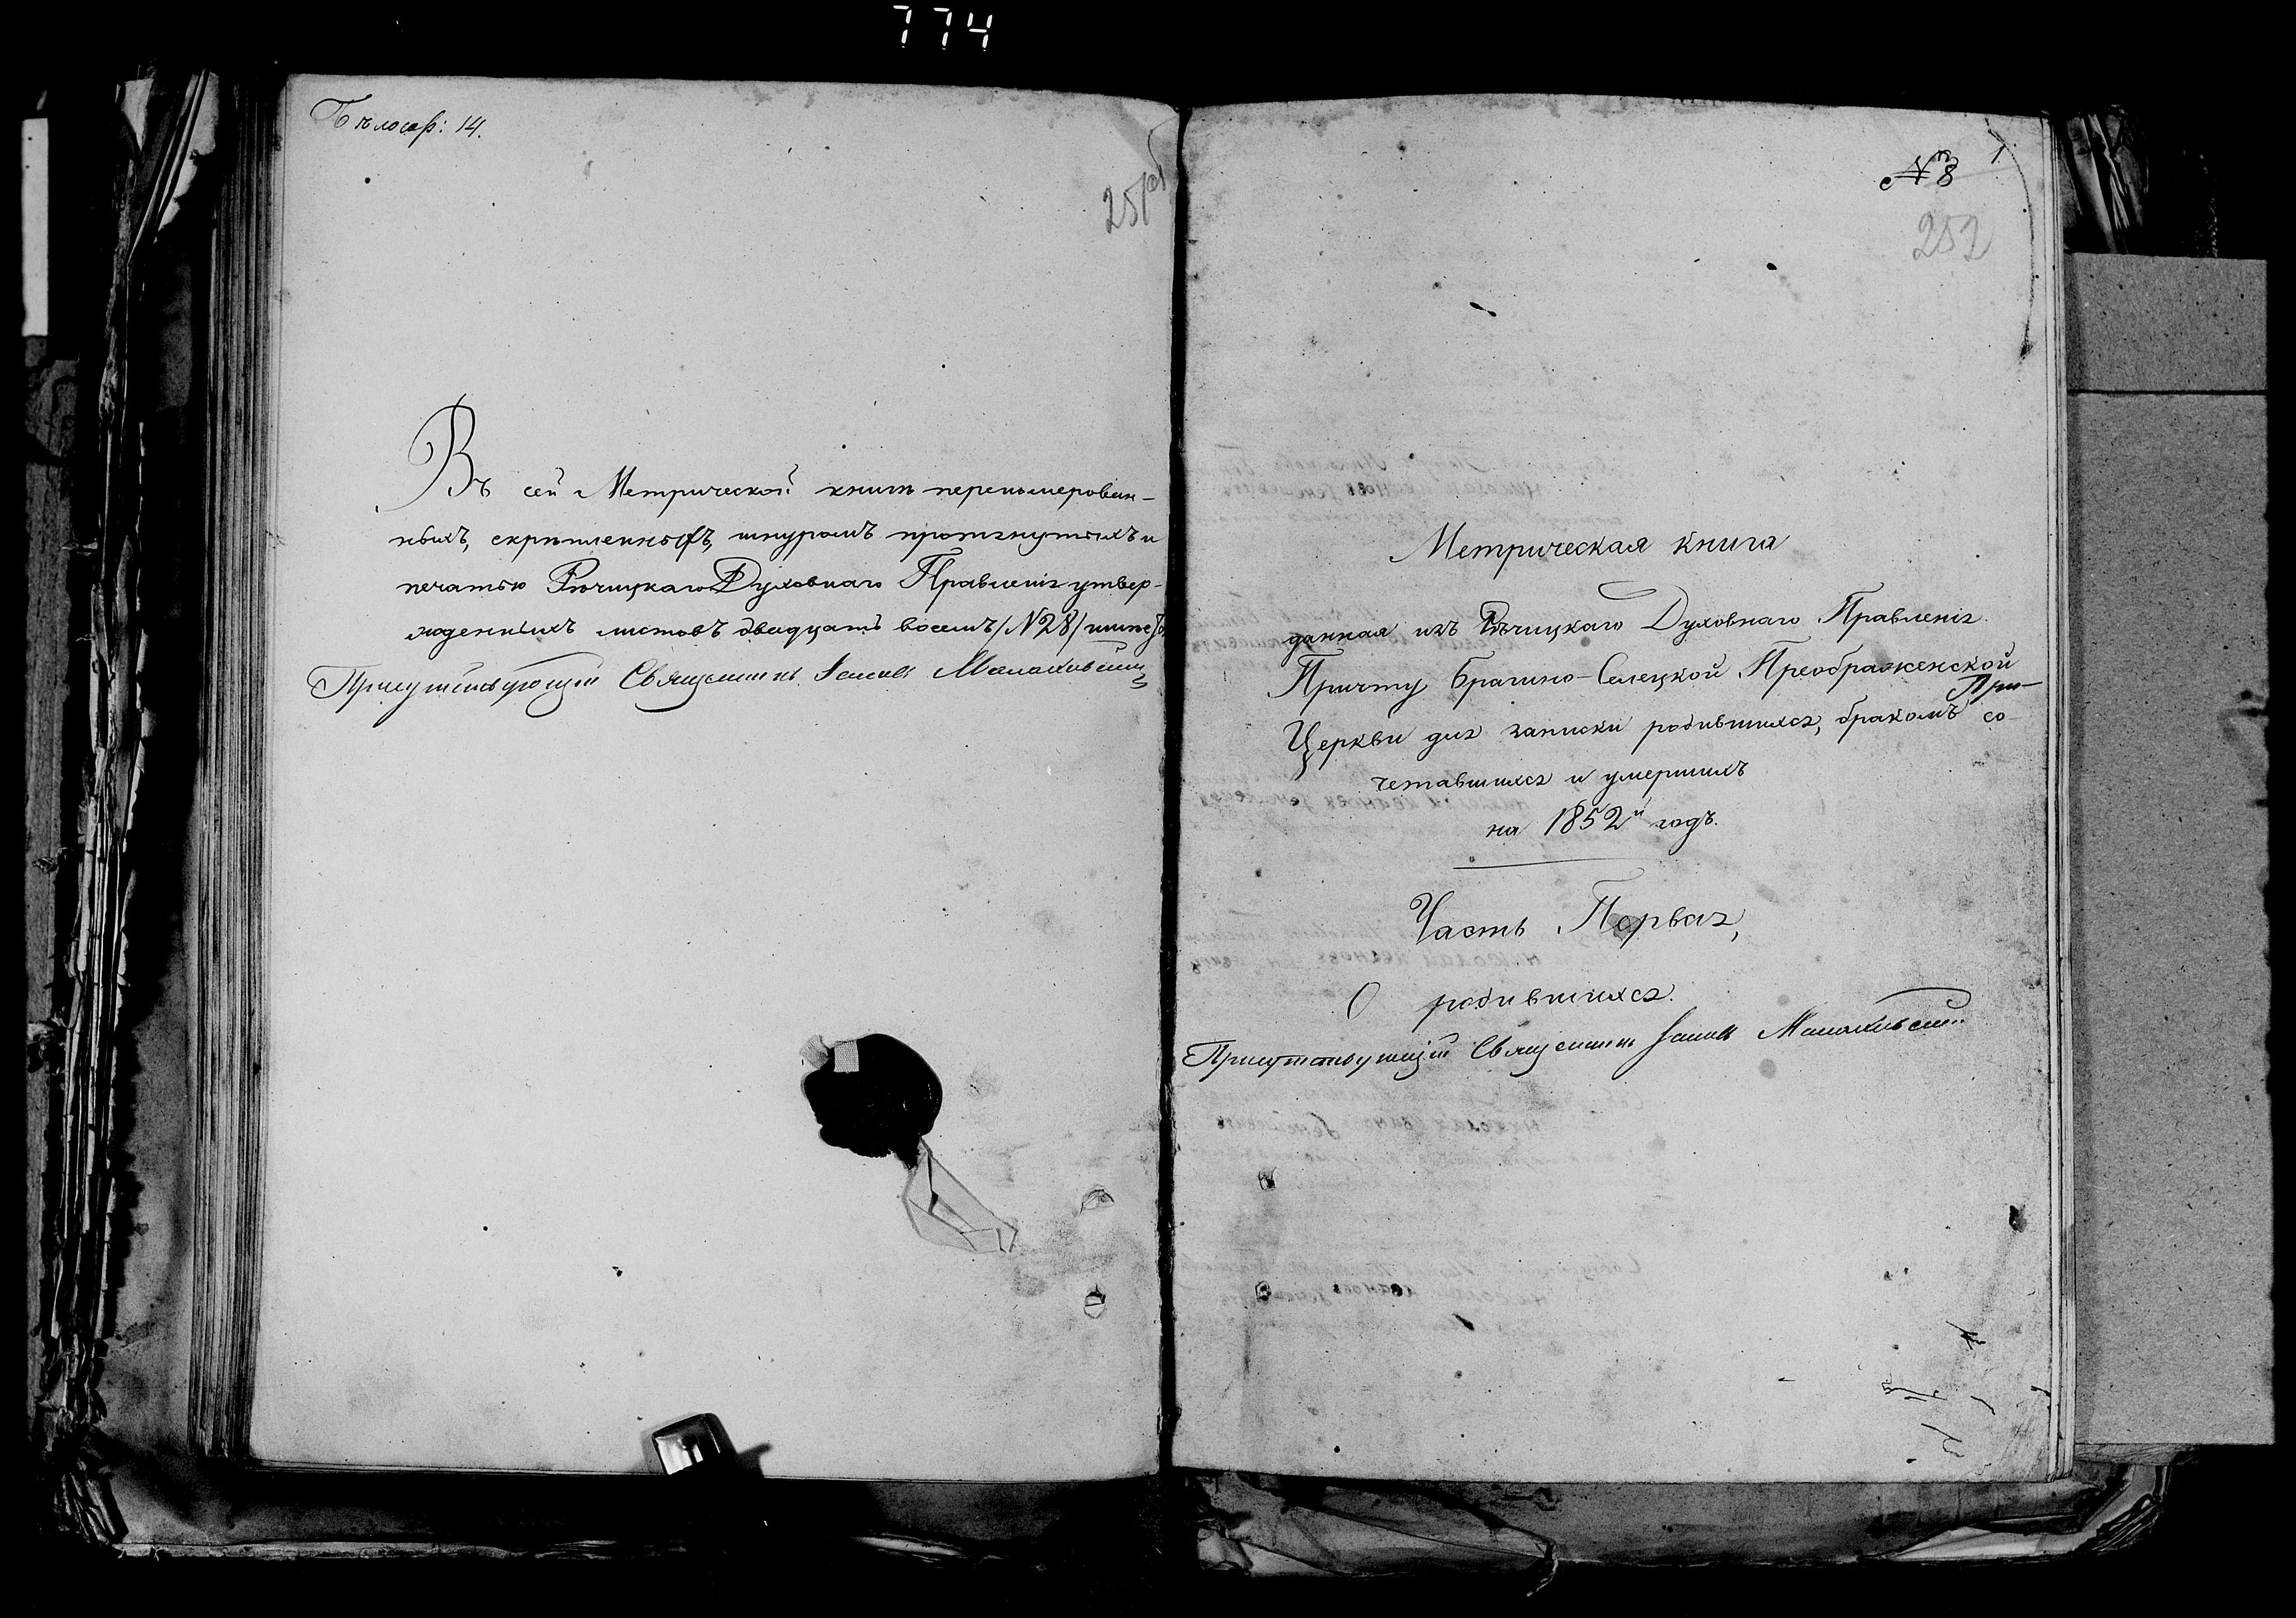 774
Бѣлосор: 14.
251 об
Въ сей Метрической книгѣ перенумерован-
ныхъ, скрѣпленныхъ, шнуромъ протянутыхъ и
печатью Рѣчицкаго Духовнаго Правленія утвер-
жденныхъ листовъ двадцать восемь /N28/
Присутствующій Священникъ Малаховскій
N 8
1
252
Метрическая книга
данная изъ Рѣчицкаго Духовнаго Правленія
Причту Брагино-Селецкой Преображенской
При-
Церкви для записки родившихся, бракомъ со-
четавшихся и умершихъ
на 1852й годъ.
Часть Первая,
О родившихся.
Присутствующій Священникъ Малаховскій